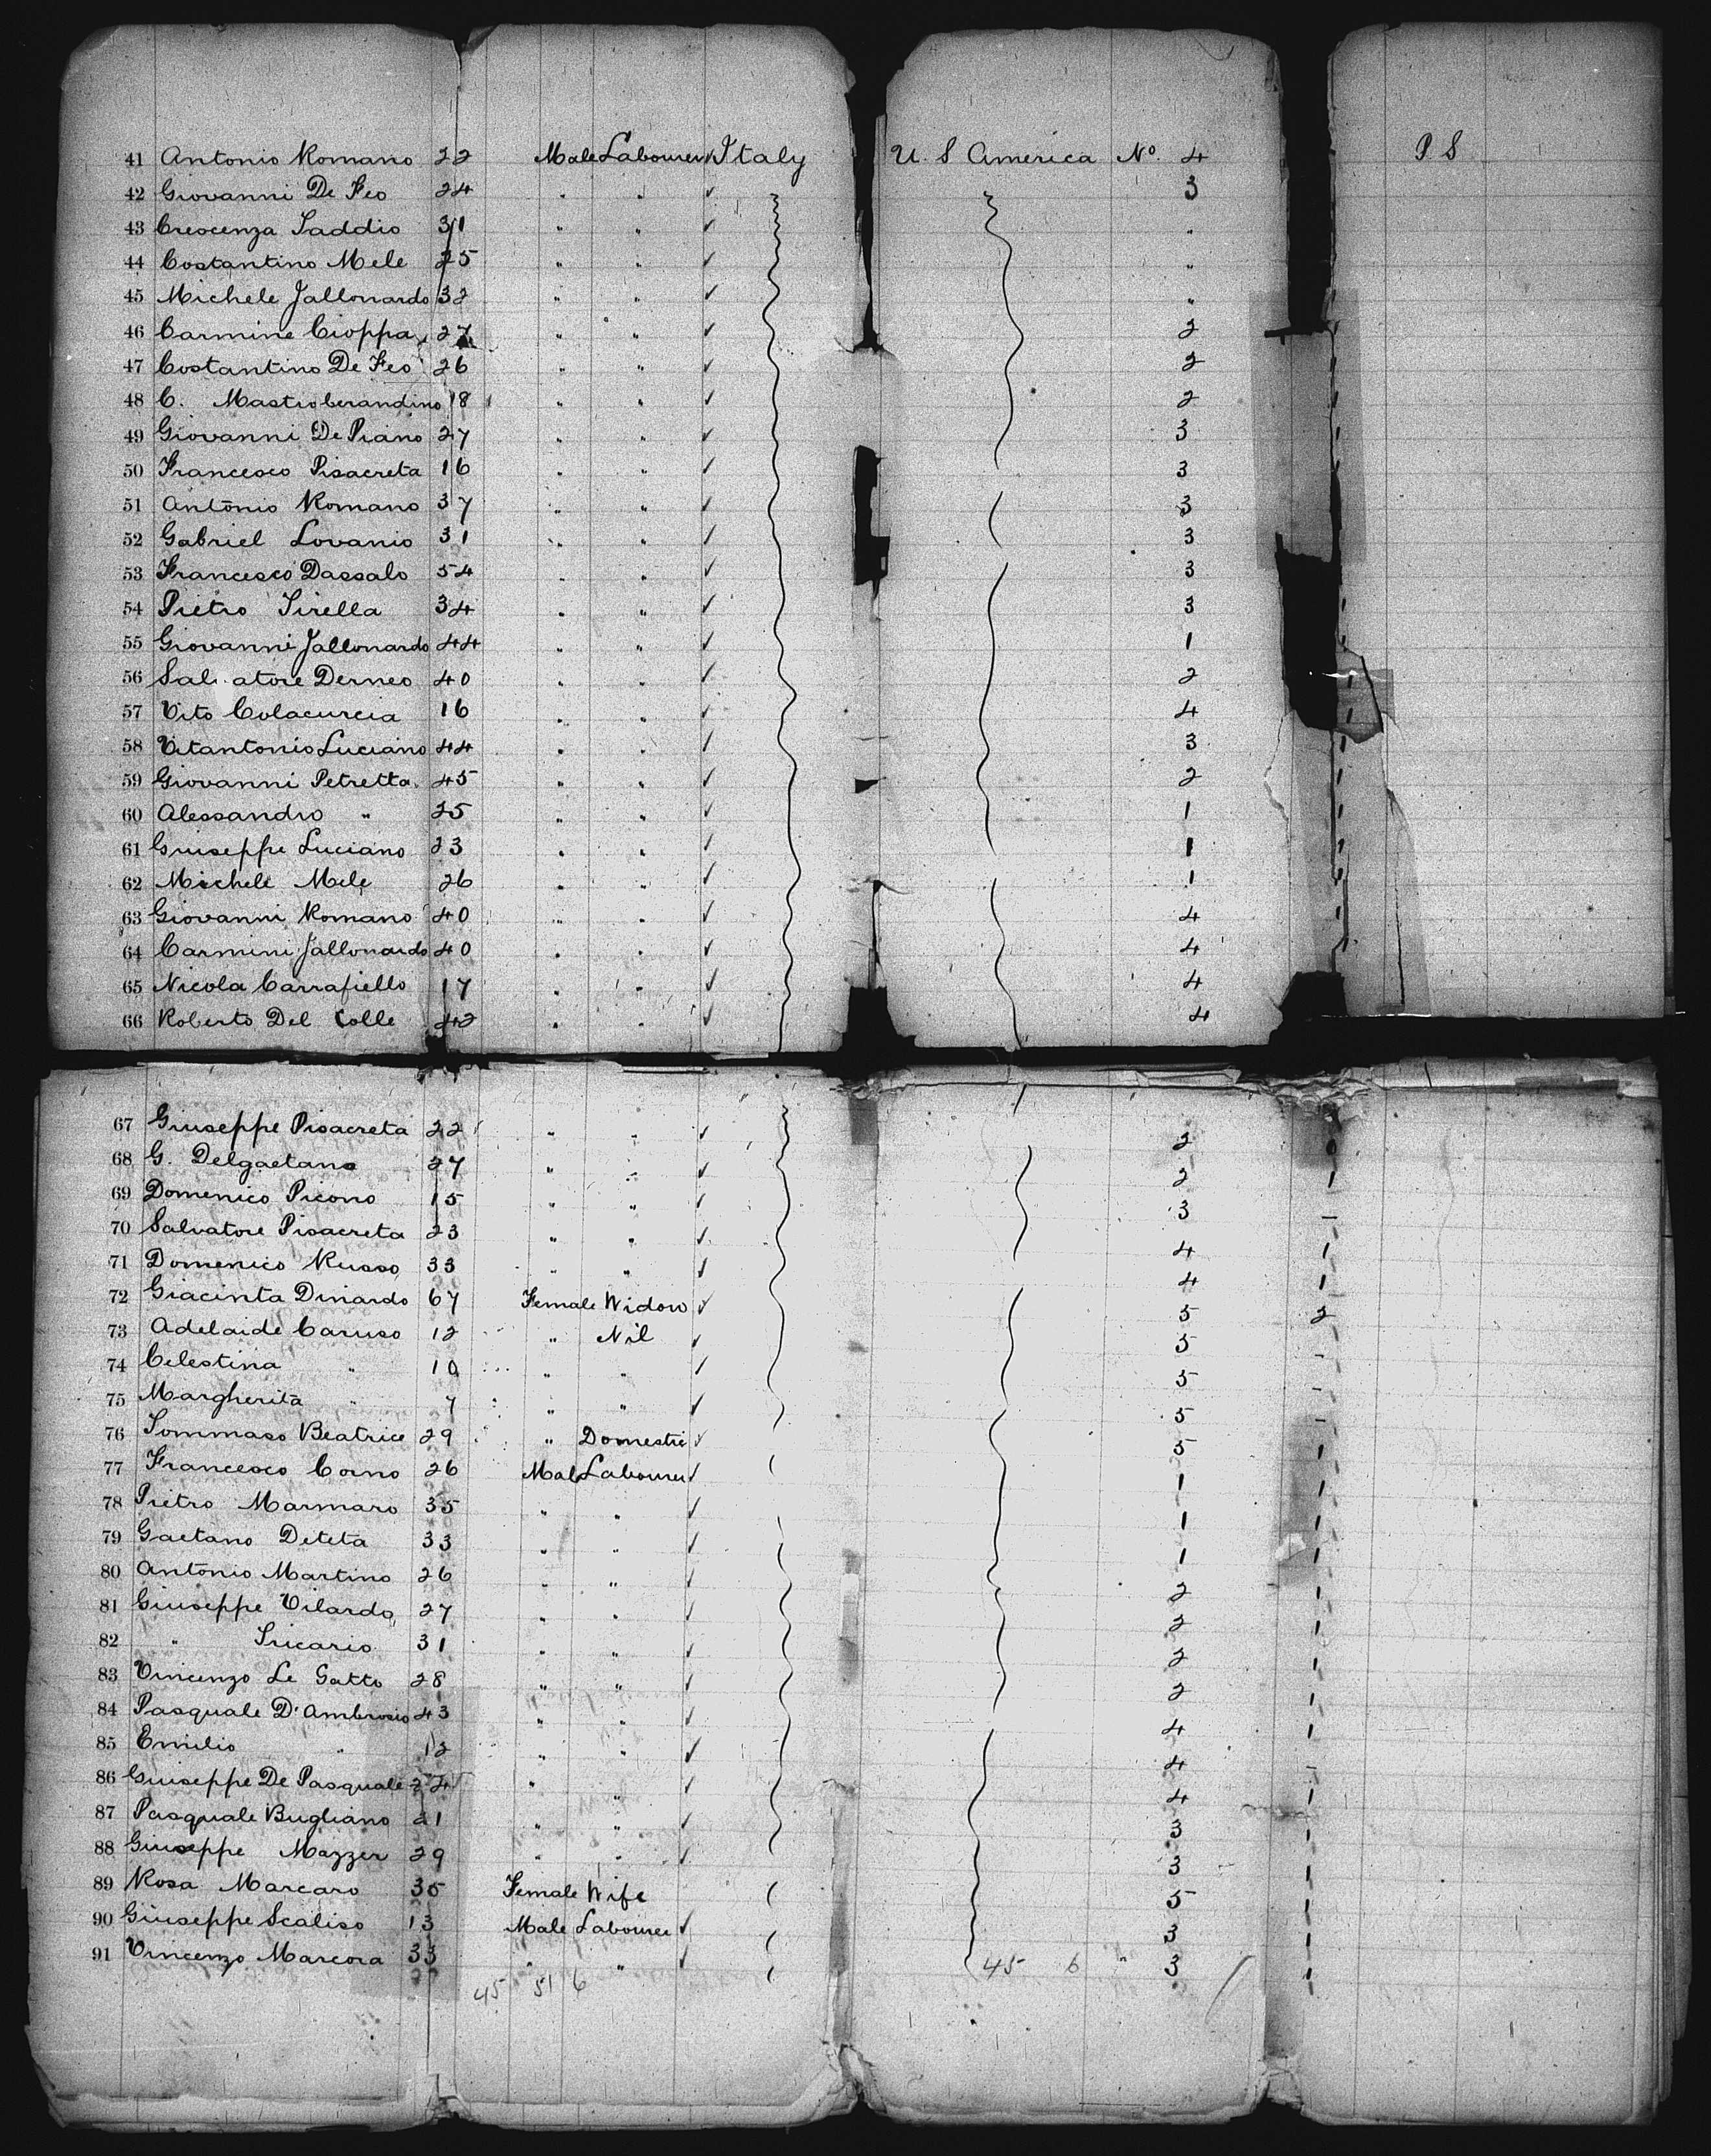 41 Antonio Romano 22 Male Labourer ✓ Italy U. S America No. 4 P S
42 Giovanni De Feo 24 " " ✓ 3
43 Crescenza Taddio 31 " " ✓ "
44 Costantino Mele 25 " " ✓ "
45 Michele Jallonardo 32 " " ✓ "
46 Carmine Cioppa 27 " " ✓ 2 1
47 Costantino De Feo 26 " " ✓ 2 1
48 C. Mastroberandino 18 " " ✓ 2 1
49 Giovanni De Piano 27 " " ✓ 3 1
50 Francesco Pisacreta 16 " " ✓ 3 1
51 Antonio Romano 37 " " ✓ 3
52 Gabriel Lovanio 31 " " ✓ 3
53 Francesco Dassalo 54 " " ✓ 3
54 Pietro Tirella 34 " " ✓ 3 1
55 Giovanni Jallonardo 44 " " ✓ 1
56 Sal atore Derneo 40 " " ✓ 2 1
57 Vito Colacurcia 16 " " ✓ 4 1
58 Vitantonio Luciano 44 " " ✓ 3 1
59 Giovanni Petretta 45 " " ✓ 2 1
60 Alessandro " 25 " " ✓ 1 1
61 Giuseppe Luciano 23 " " ✓ 1 1
62 Michele Mele 26 " " ✓ 1 1
63 Giovanni Romano 40 " " ✓ 4 1
64 Carmini Jallonardo 40 " " ✓ 4 1
65 Nicola Carrafiello 17 " " ✓ 4
66 Roberto Del Colle 42 " " ✓ 4
67 Giuseppe Pisacreta 22 " " ✓ 2
68 G. Delgaetano 27 " " ✓ 2 1
69 Domenico Picono 15 " " ✓ 3 –
70 Salvatore Pisacreta 23 " " ✓ 4 1
71 Domenico Russo 33 " " ✓ 4 1
72 Giacinta Dinardo 67 Female Widow ✓ 5 2
73 Adelaide Caruso 12 " Nil ✓ 5 –
74 Celestina " 10 " " ✓ 5 –
75 Margherita " 7 " " ✓ 5 –
76 Tommaso Beatrice 29 " Domestic ✓ 5 1
77 Francesco Corno 26 Male Labourer ✓ 1 1
78 Pietro Marmaro 35 " " ✓ 1 1
79 Gaetano Deteta 33 " " ✓ 1 1
80 Antonio Martino 26 " " ✓ 2 1
81 Giuseppe Vilardo 27 " " ✓ 2 1
82 " Tricario 31 " " ✓ 2 1
83 Vincenzo Le Gatto 28 " " ✓ 2 1
84 Pasquale D'Ambrosio 43 " " ✓ 4 1
85 Emilio " 12 " " ✓ 4 –
86 Giuseppe De Pasquale 24 " " ✓ 4 1
87 Pasquale Bugliano 21 " " ✓ 3 1
88 Giuseppe Mazzer 29 " " ✓ 3 1
89 Rosa Marcaro 35 Female Wife 5 1
90 Giuseppe Scaliso 13 Male Labourer ✓ 3 1
91 Vincenzo Marcora 33 " " ✓ 45 6 " 3 1
45 51 6